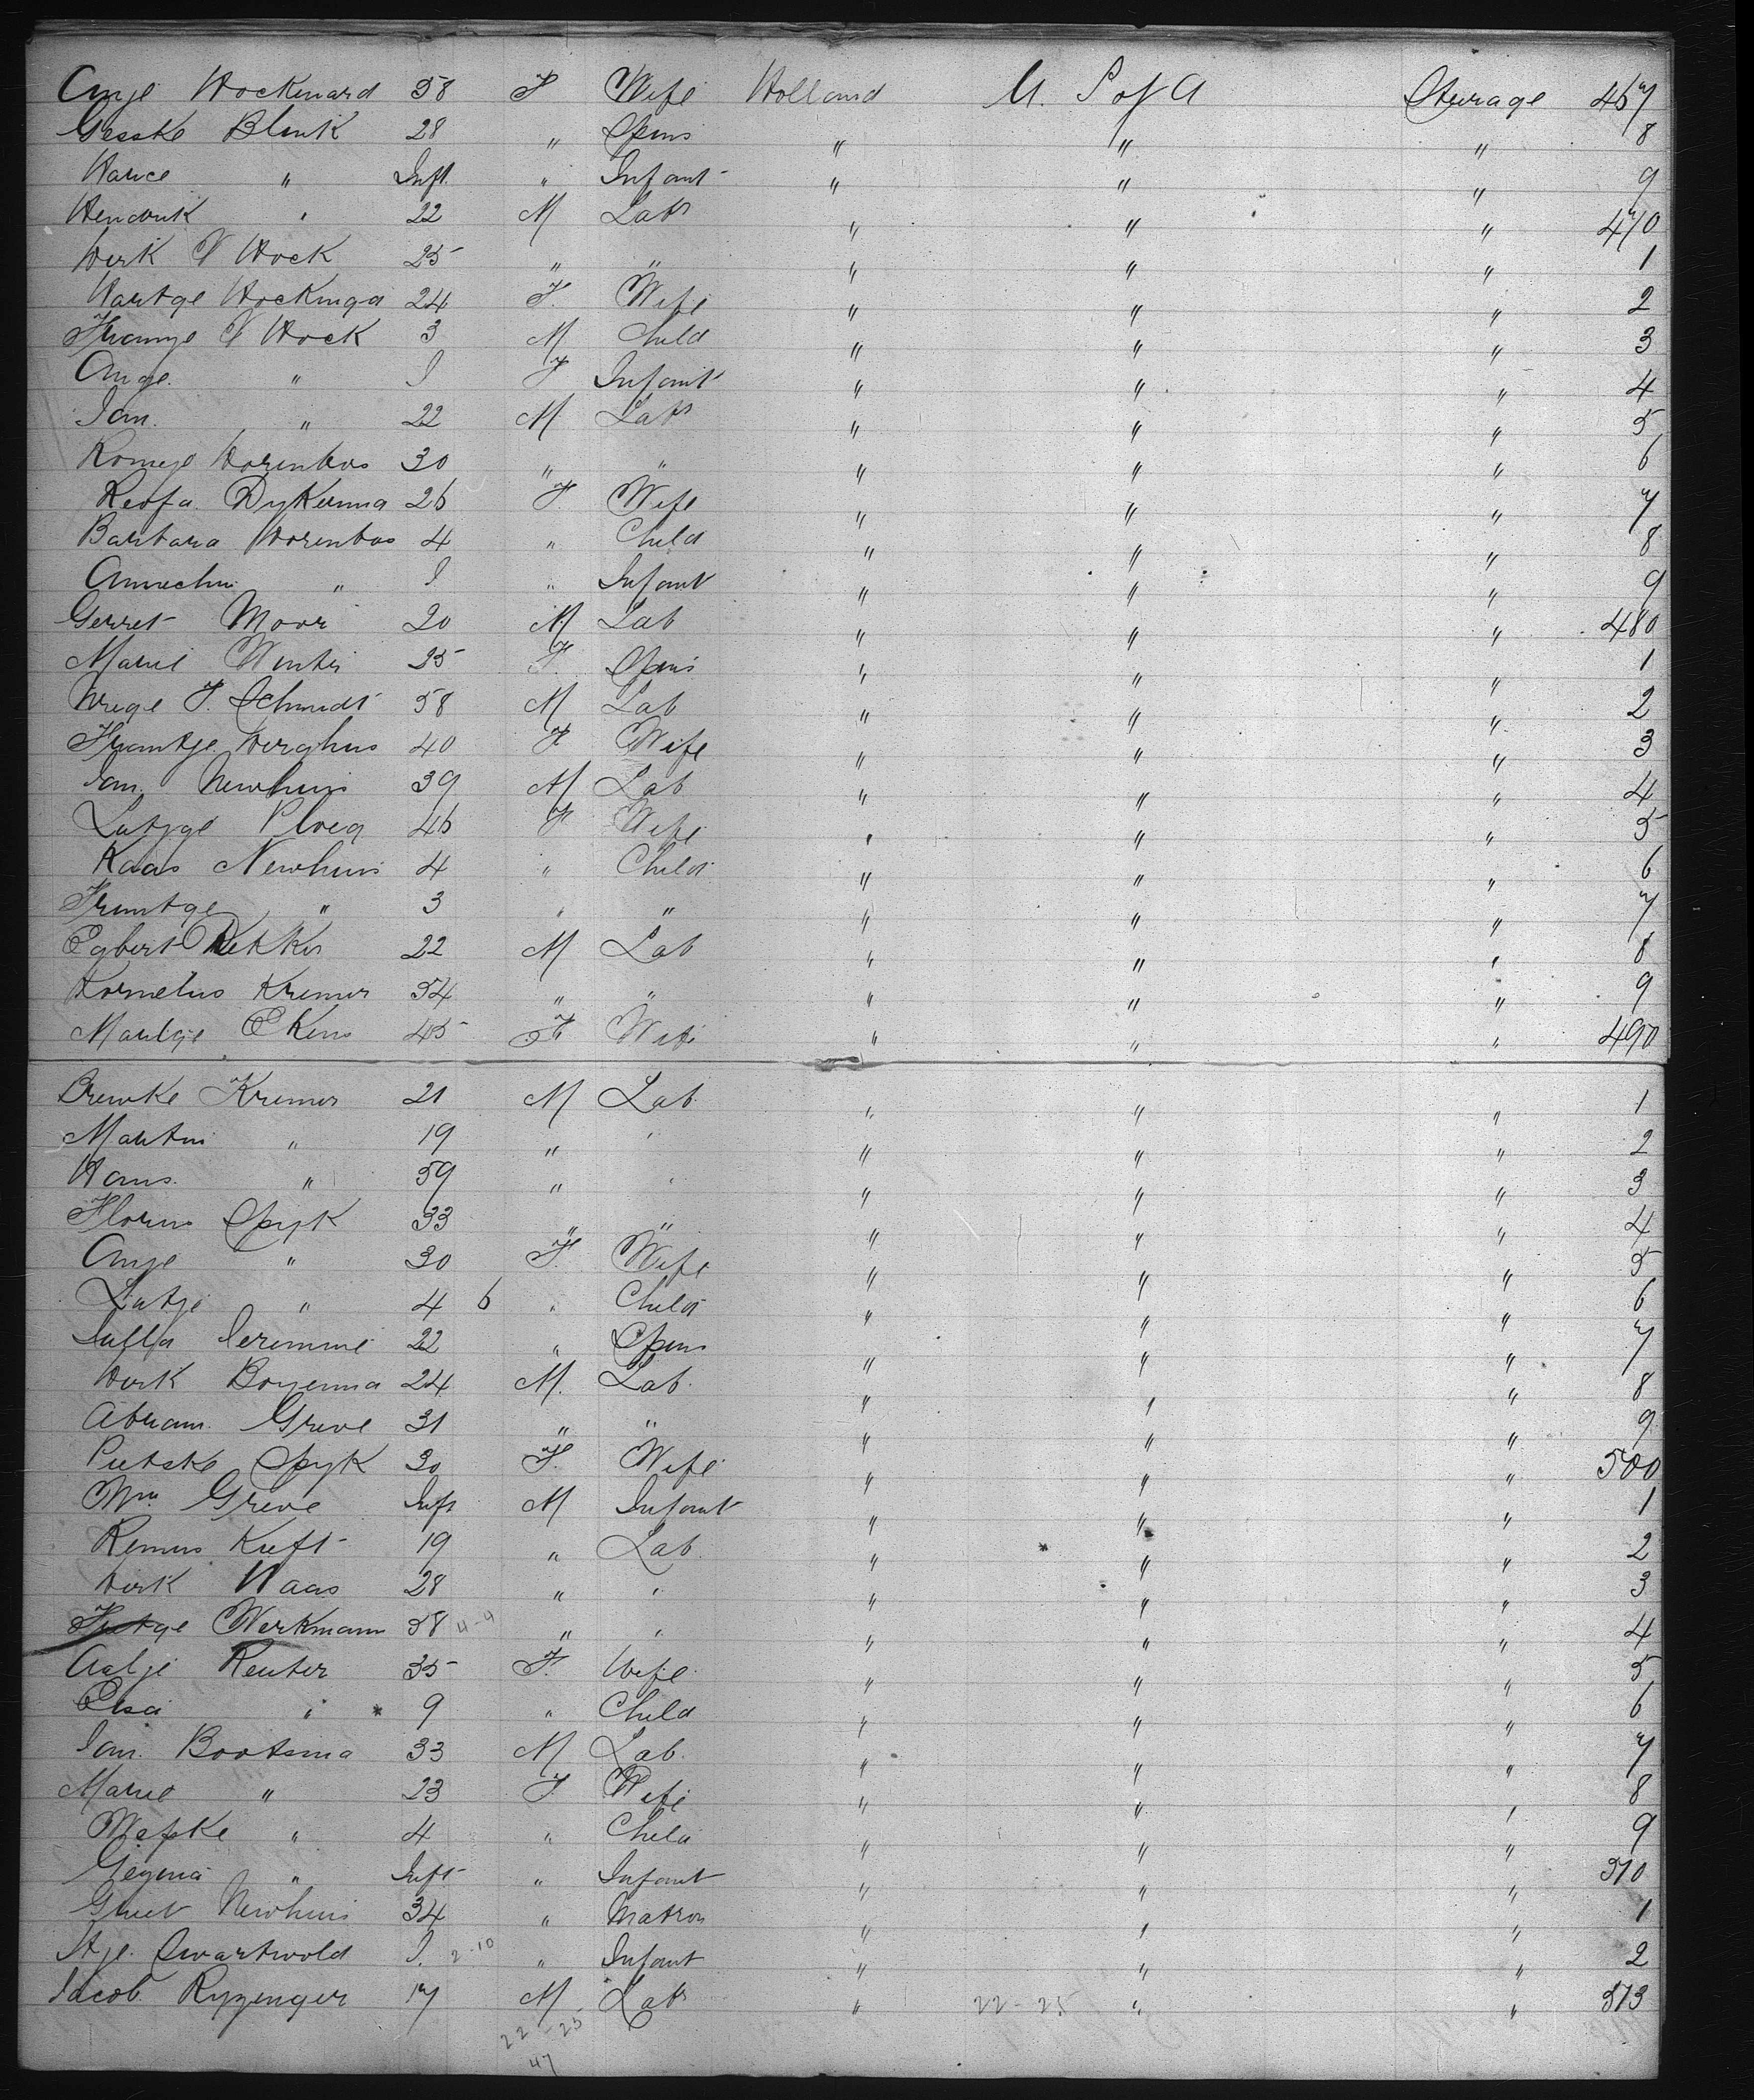 Anje Hockenard 58 F Wife Holland U. S of A Steerage 467
Gesske Blink 28 " Spins " " " 8
Harice " Inft. " Infant " " " 9
Hendrik " 22 M Labr " " " 470
Dirk V Hoek 25 " " " " " 1
Hartge Hockinga 24 F. Wife " " " 2
Franye V Hoek 3 M Child " " " 3
Ange. " I F Infant " " " 4
Jan. " 22 M Labr " " " 5
Romeje Dorenbos 30 " " " " " 6
Reofa. Dykema 26 F. Wife " " " 7
Barbara Dorenbos 4 " Child " " " 8
Annechie " I " Infant " " " 9
Gerret Moor 20 M Lab " " " 480
Marie Winter 25 F. Spins " " " 1
F. Schmidt 58 M Lab " " " 2
Frantje Verghus 40 F Wife " " " 3
Jan. Newhuis 39 M Lab " " " 4
Latjge Ploeg 46 F Wife " " " 5
Kaas Newhuis 4 " Child " " " 6
Truntge " 3 " " " " " 7
Egbert Rekker 22 M Lab " " " 8
Kornelius Kremer 54 " " " " " 9
Martje Ekens 45 F Wife " " " 490
Brewke Kremer 21 M Lab " " " 1
Martin " 19 " " " " " 2
Hans. " 59 " " " " " 3
Florus Spyk 33 " " " " " 4
Anje " 30 F. Wife " " " 5
Latje " 4 6 " Child " " " 6
Jeremmie 22 " Spins " " " 7
Dirk Boyenma 24 M. Lab. " " " 8
Abram. Greve 31 " " " " " 9
Pietske Spyk 30 F. Wife " " " 500
Wm Greve Inft M Infant " " " 1
Remus Kuft 19 " Lab. " " " 2
Dirk Haas 28 " " " " " 3
Werkmann 38 11-9 " " " " " 4
Aalje Reuter 35 F. Wife " " " 5
Elsa " * 9 " Child " " " 6
Jan. Bootsma 33 M Lab. " " " 7
Marie " 23 F Wife " " " 8
Wefske " 4 " Child " " " 9
Gezina " Inft " Infant " " " 510
Newhuis 34 " Matron " " " 1
Itje. Swartwold I. 2-10 " Infant " " " 2
Jacob. Ryzenger 17 M. Labr " 22-25 " " 513
22-25
47